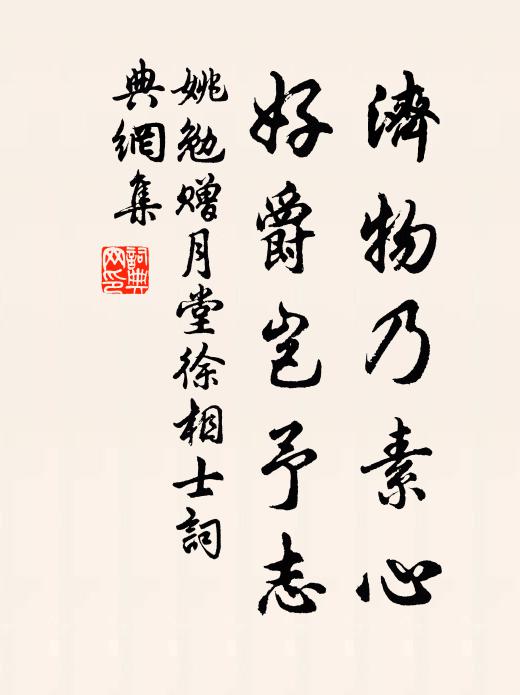 濟物乃素心
好爵岂予志
姚勉赠月堂徐相士詞
典網集
詞典網印